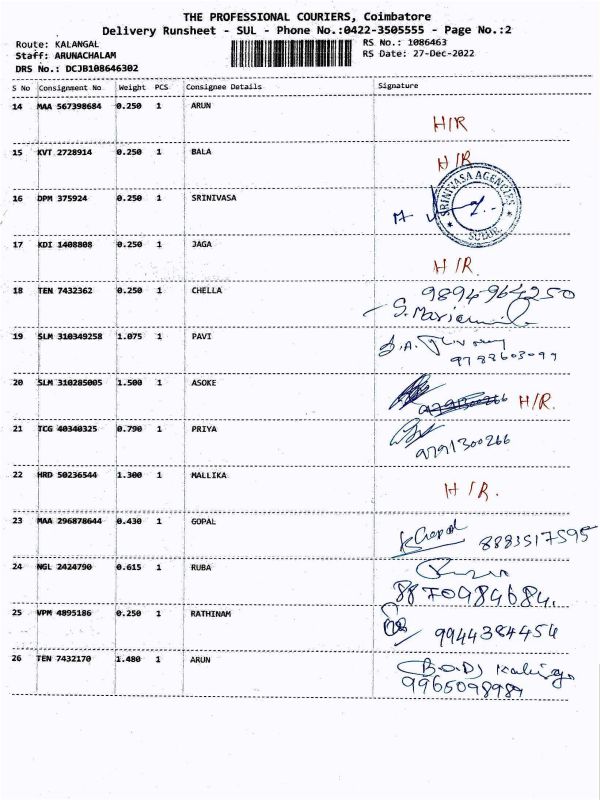 THE PROFESSIONAL COURIERS, Coimbatore
Delivery Runsheet - SUL - Phone No.:0422-3505555 - Page No.:2
Route: KALANGAL RS No.: 1086463
Staff: ARUNACHALAM RS Date: 27-Dec-2022
DRS No.: DCJB108646302
S No Consignment No Weight PCS Consignee Details Signature
14 MAA 567398684 0.250 1 ARUN
H/R
15 KVT 2728914 0.250 1 BALA
H/R
16 DPM 375924 0.250 1 SRINIVASA
SRINIVASA AGENCIES
SULUR
17 KDI 1408808 0.250 1 JAGA
H/R.
18 TEN 7432362 0.250 1 CHELLA
9894964250
19 SLM 310349258 1.075 1 PAVI
9788603099
20 SLM 310285005 1.500 1 ASOKE
H/R.
21 TCG 40340325 0.790 1 PRIYA
9791300266
22 HRD 50236544 1.300 1 MALLIKA
H/R.
23 MAA 296878644 0.430 1 GOPAL
8883517595
24 NGL 2424790 0.615 1 RUBA
8870984684.
25 VPM 4895186 0.250 1 RATHINAM
9944384454
26 TEN 7432170 1.480 1 ARUN